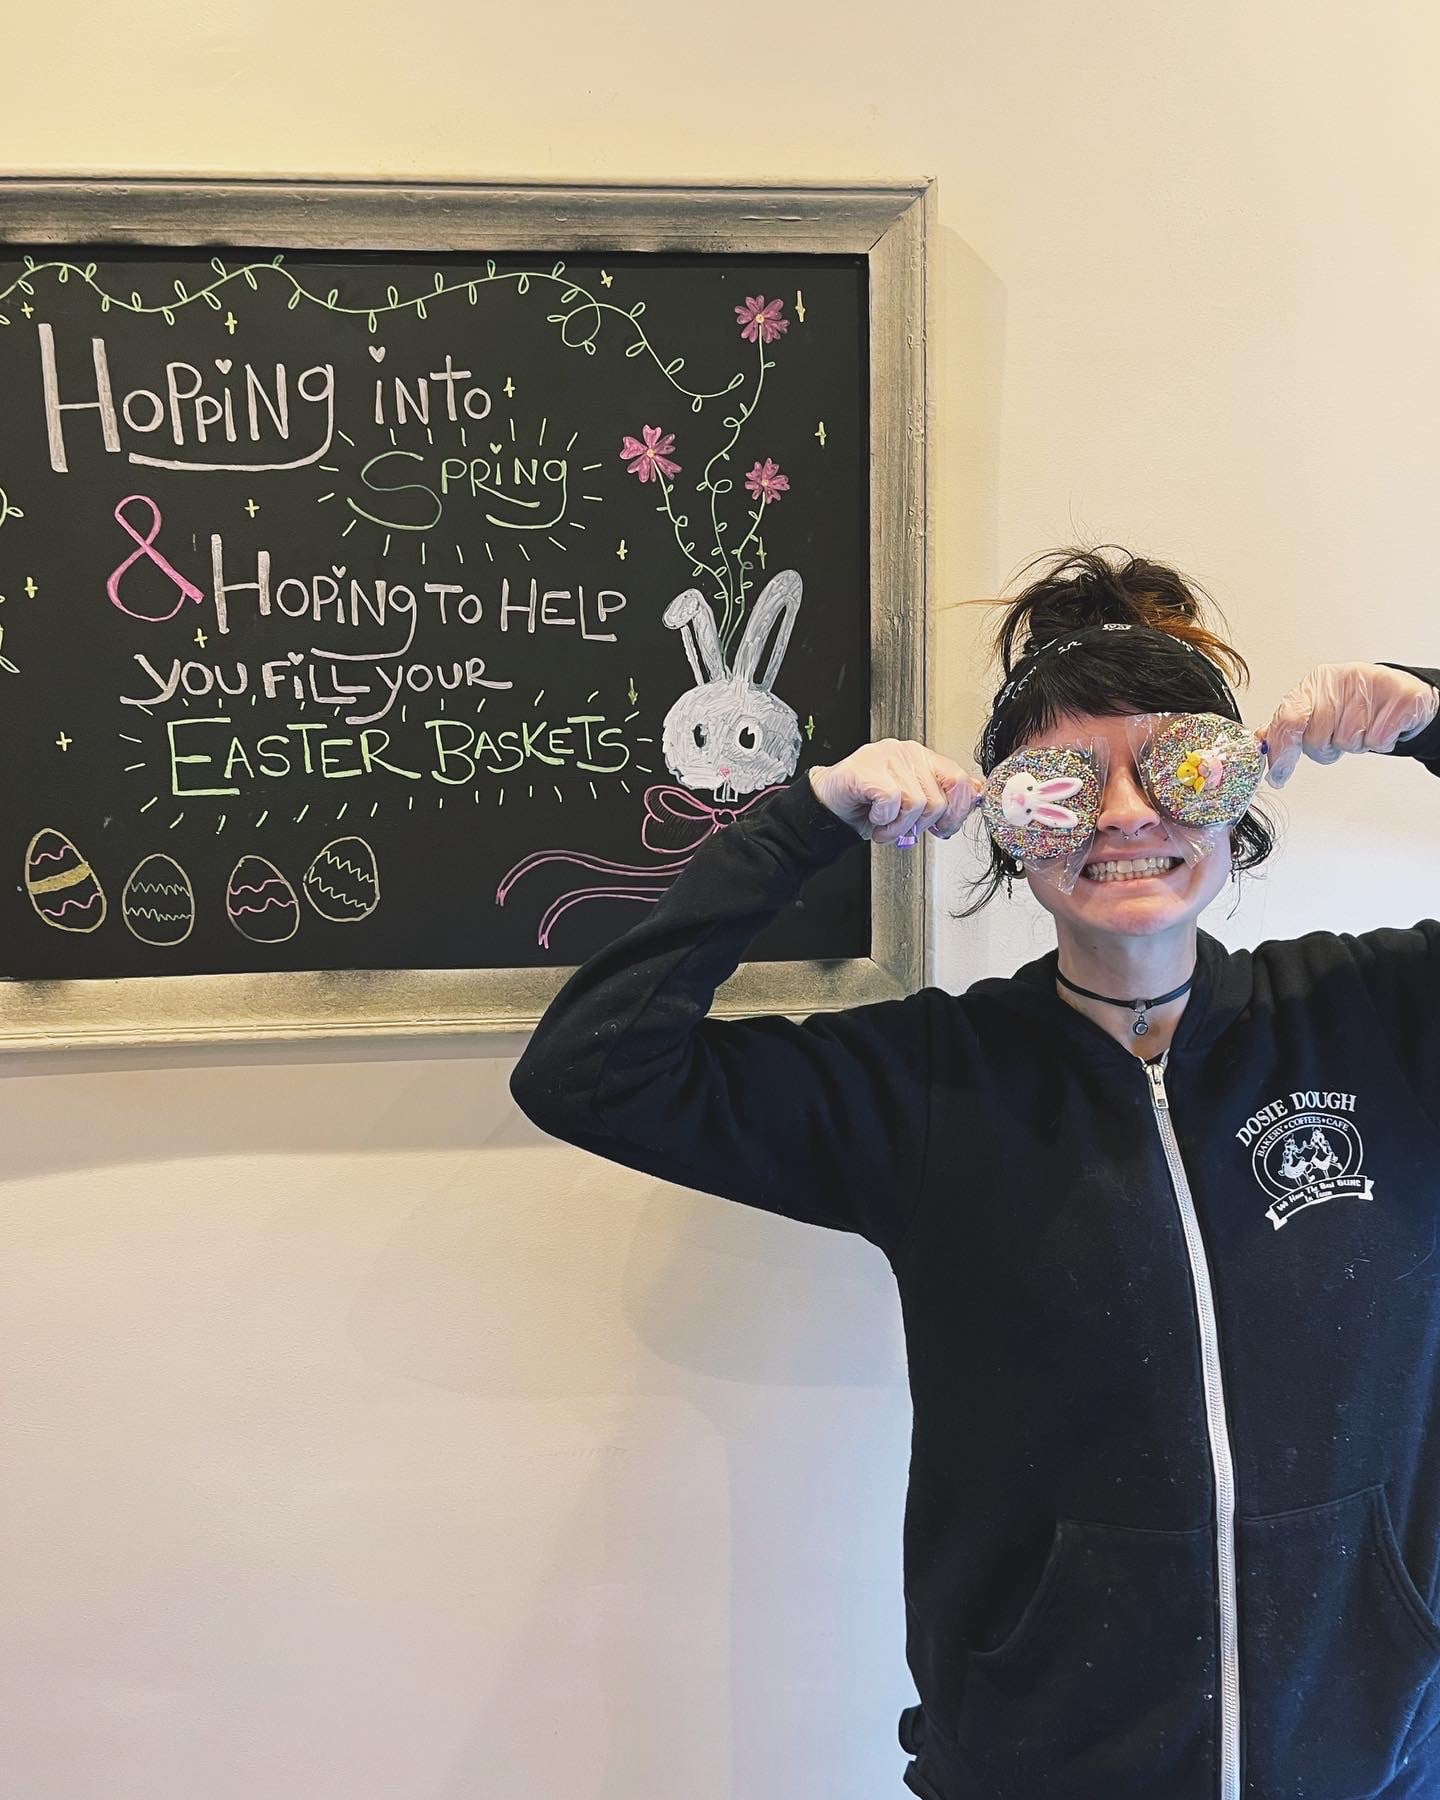 Hopping into
Spring
& Hoping to Help
you fill your
Easter Baskets
DOSIE DOUGH
BAKERY • COFFEES • CAFE
We Have The Best BUNS
In Town